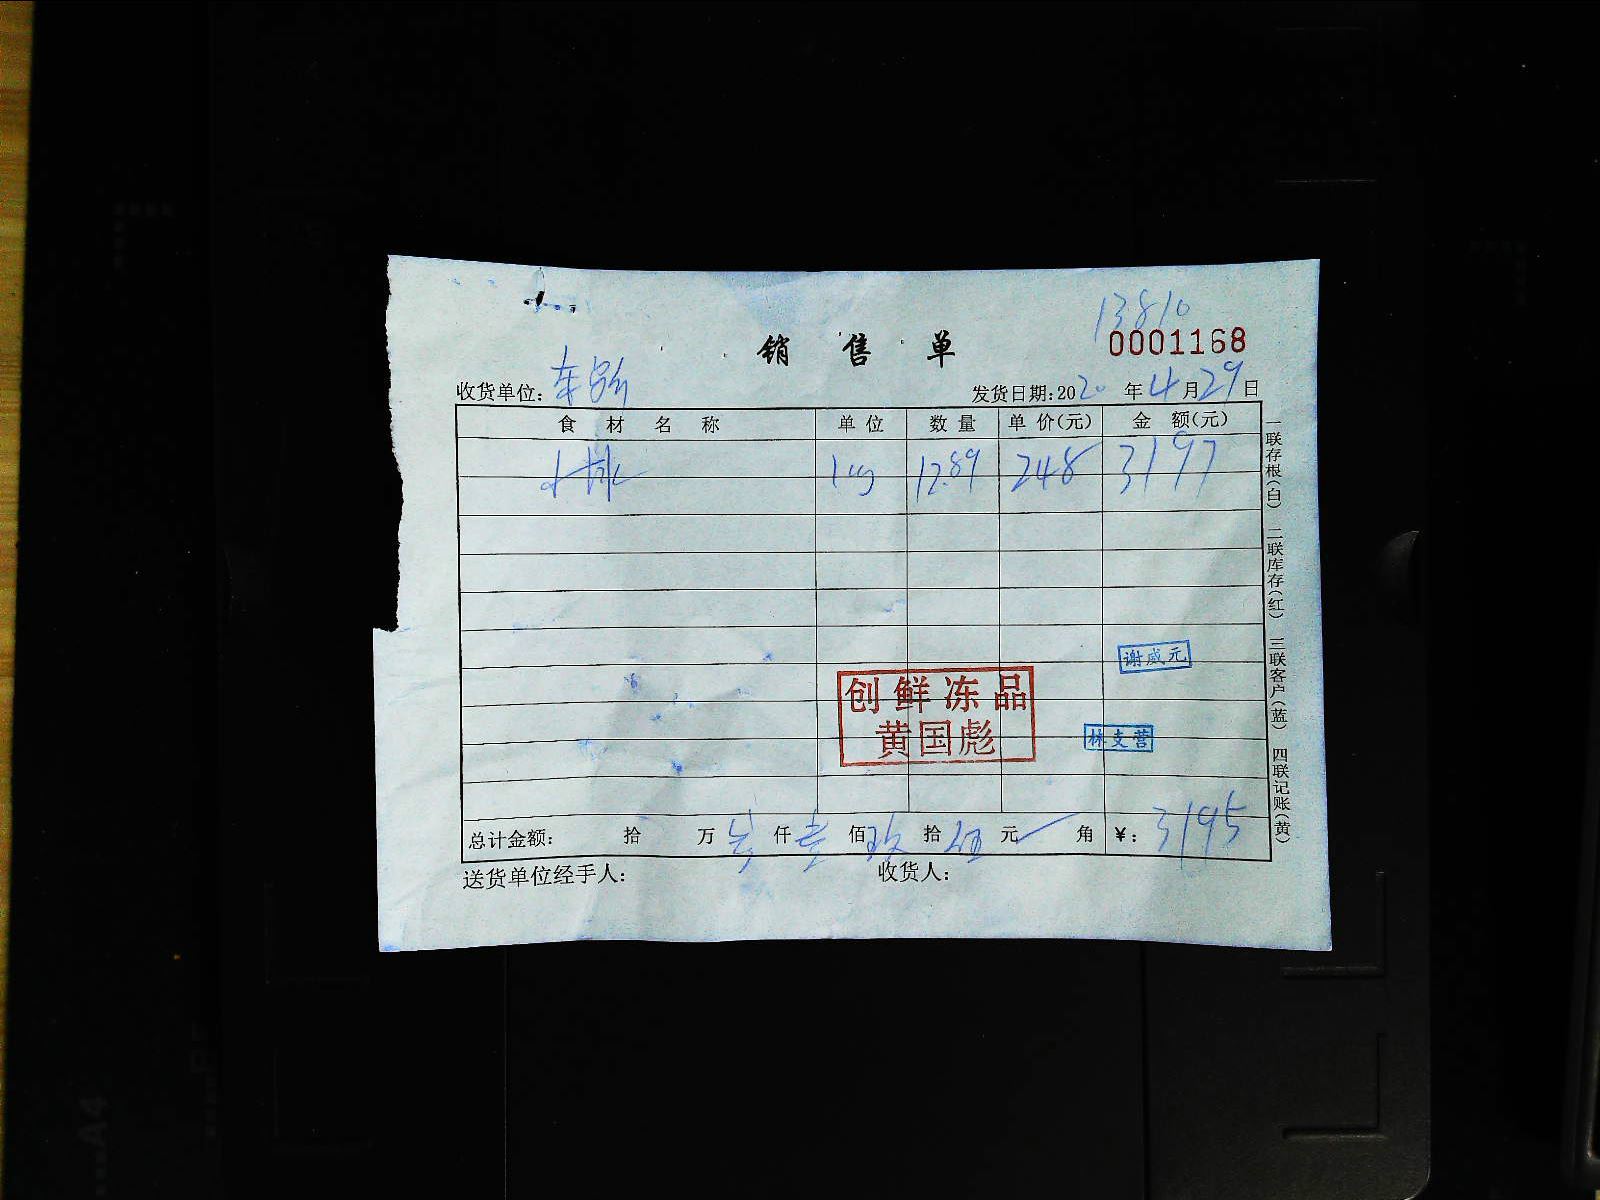 13810
销 售 单 0001168
收货单位: 发货日期:2020年4月29日
食材名称 单位 数量 单价(元) 金额(元)
小排 1kg 12.89 248 3197
谢威元
创鲜冻品
黄国彪
林支营
总计金额: 拾 万 叁 仟 壹 佰 玖 拾 伍 元 角 ¥: 3195
送货单位经手人: 收货人:
一联存根(白) 二联库存(红) 三联客户(蓝) 四联记账(黄)